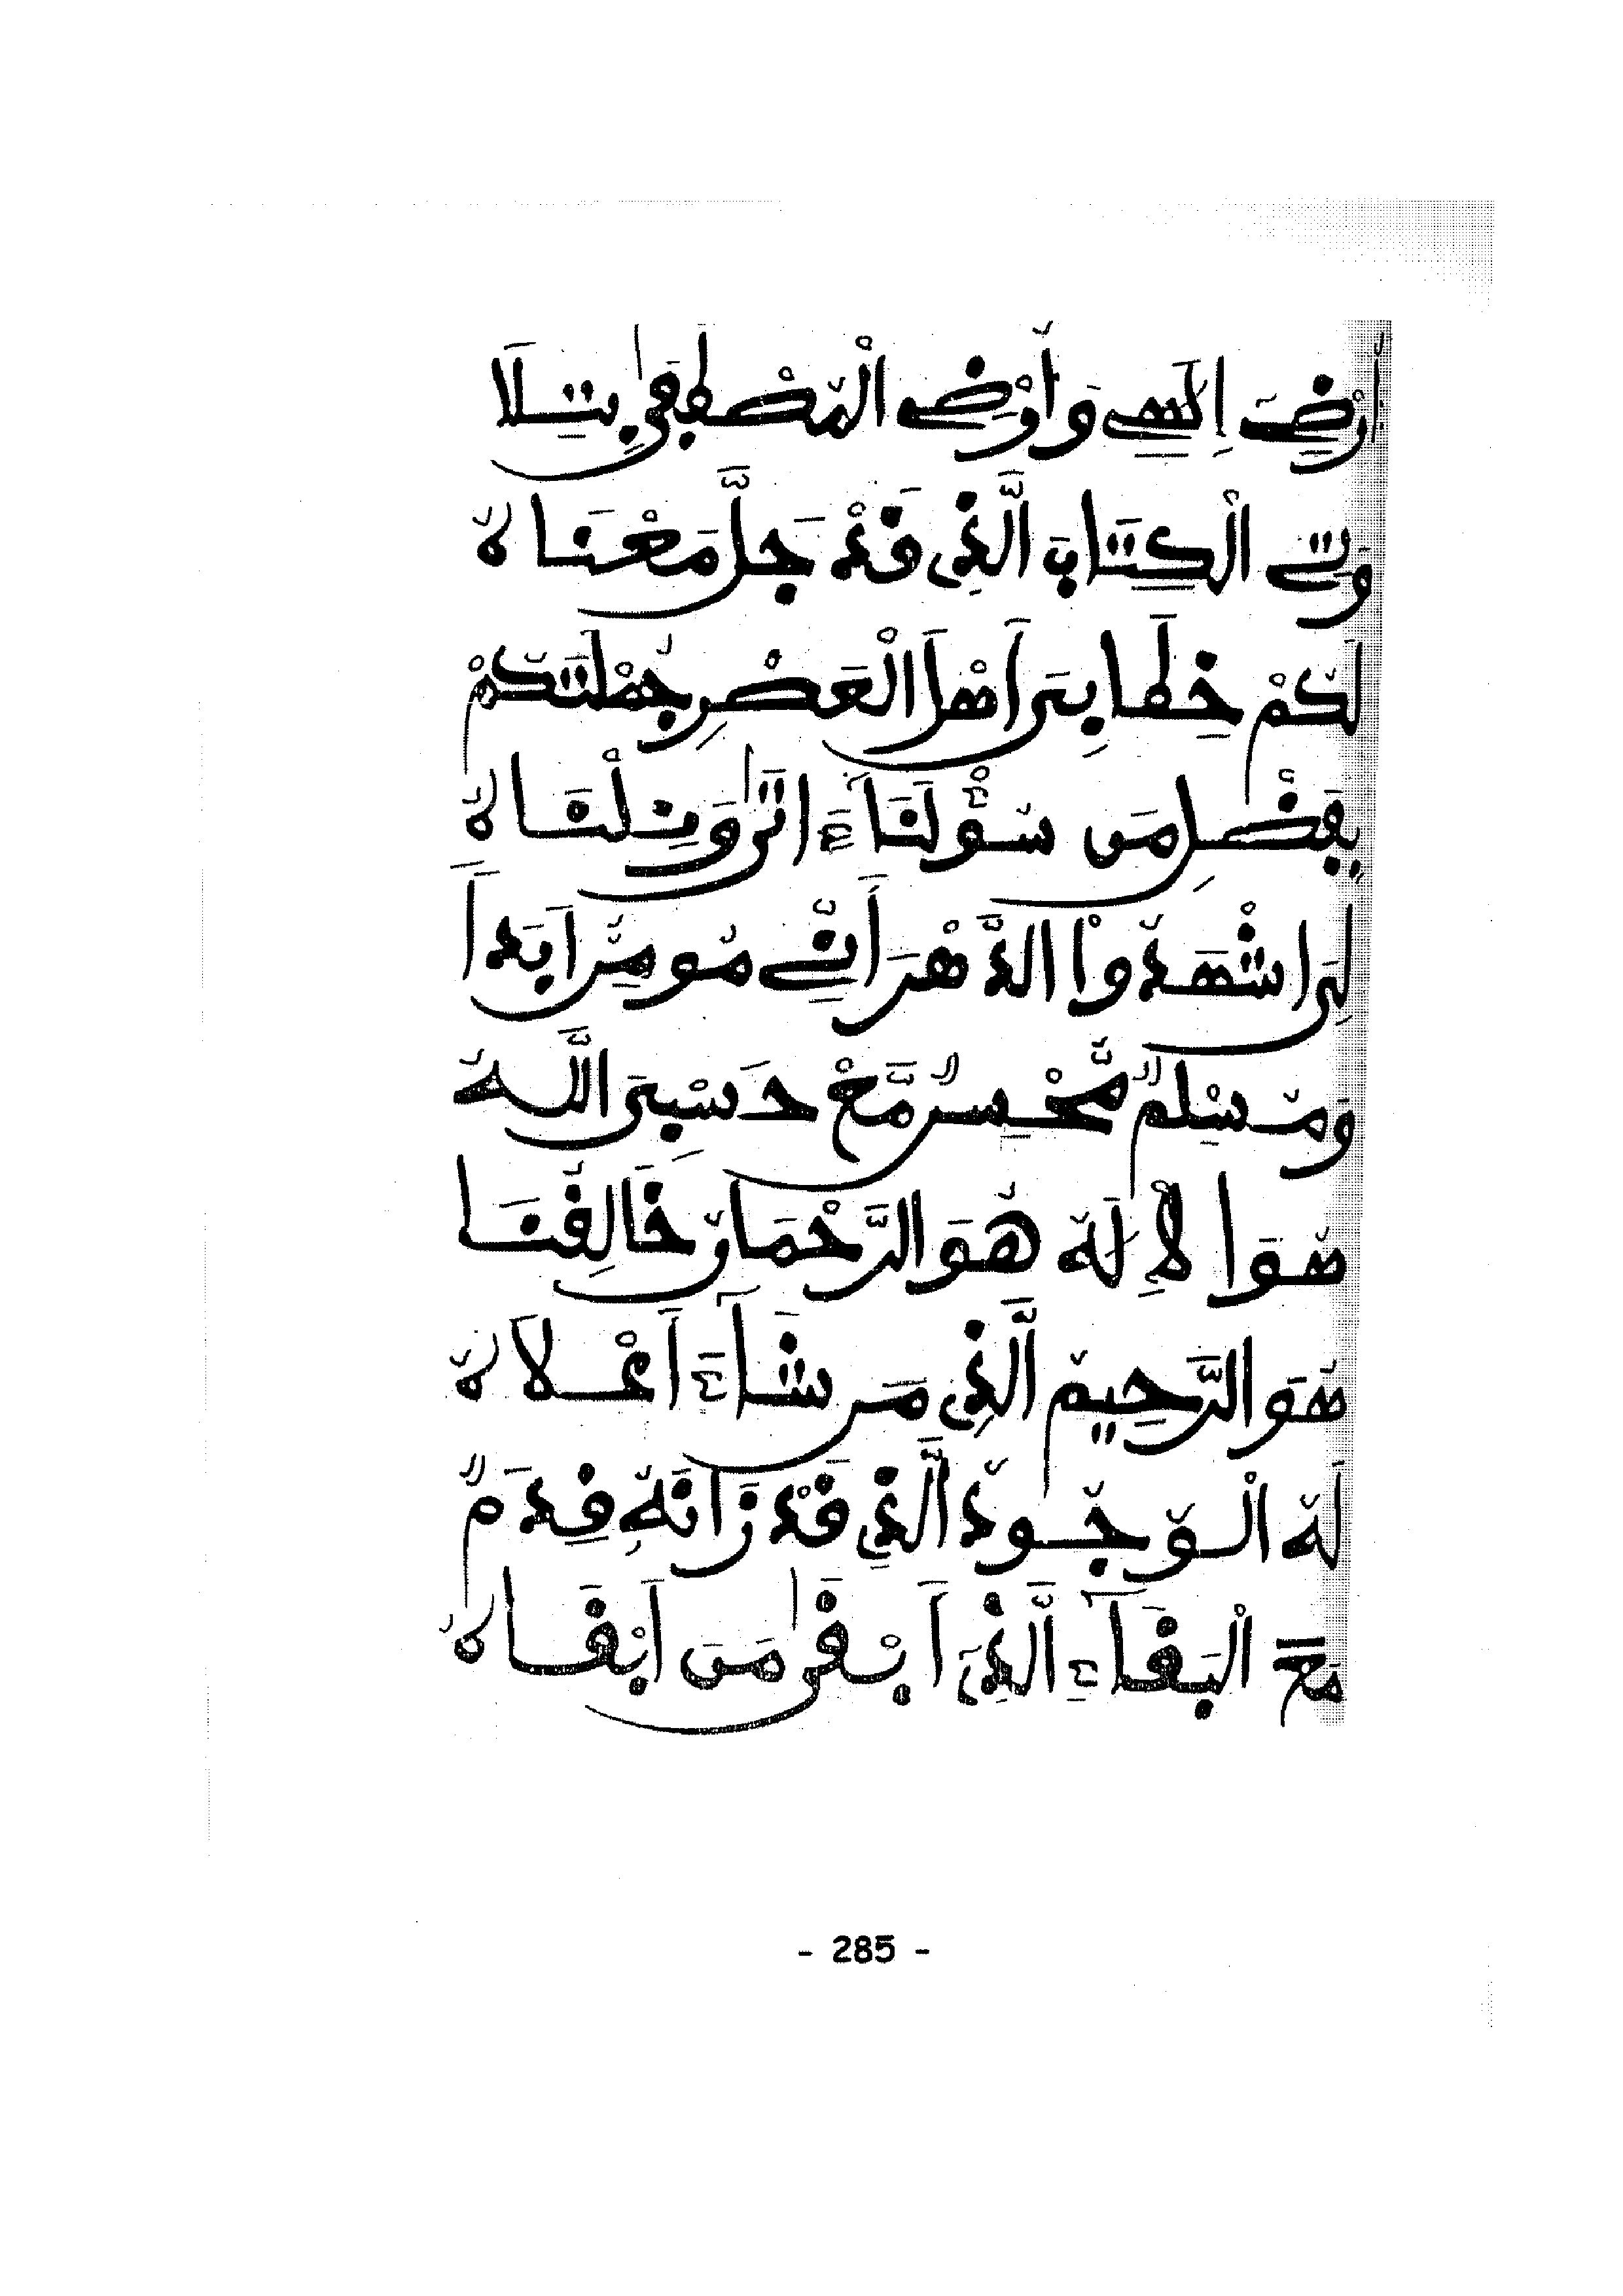 أُرْضِ إِلَٰهِي وَأُرْضِي الْمُصْطَفَىٰ بِتِلَا
وَتِي الْكِتَابَ الَّذِي قَدْ جَلَّ مَعْنَاهُ
لَكُمْ خِطَابِيَ أَهْلَ الْعَصْرِ جُمْلَتُكُمْ
بِفَضْلِ مَن سُؤْلَنَا ءَاتَىٰ وَنِلْنَاهُ
لِيَ اشْهَدُوا الدَّهْرَ أَنِّي مُومِنٌ أَبَدًا
وَمُسْلِمٌ مُّحْسِنٌ مَّعْ حَسْبِيَ اللَّهُ
هُوَ الْإِلَٰهُ هُوَ الرَّحْمَانُ خَالِقُنَا
هُوَ الرَّحِيمُ الَّذِي مَن شَاءَ أَعْلَاهُ
لَهُ الْوُجُودُ الَّذِي قَدْ زَانَهُ قِدَمٌ
مَعَ الْبَقَاءِ الَّذِي أَبْقَىٰ مَنَ ابْقَاهُ
- 285 -